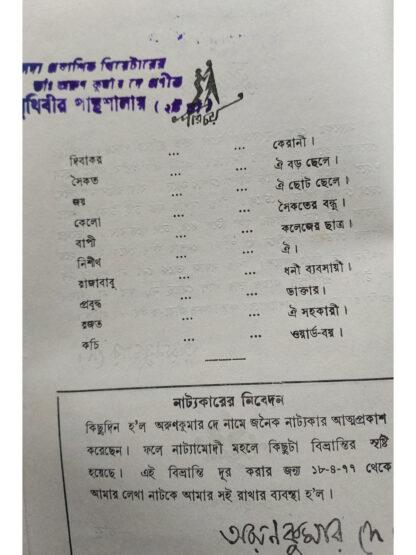 প্রকাশিত থিয়েটারের
ডাঃ অরুণ কুমার দে প্রণীত
পৃথিবীর পান্থশালায়
পরিচয়
দিবাকর ... ... কেরানী।
সৈকত ... ... ঐ বড় ছেলে।
জয় ... ... ঐ ছোট ছেলে।
কেলো ... ... সৈকতের বন্ধু।
বাপী ... ... কলেজের ছাত্র।
নিশীথ ... ... ঐ।
রাজাবাবু ... ... ধনী ব্যবসায়ী।
প্রবুদ্ধ ... ... ডাক্তার।
রজত ... ... ঐ সহকারী।
কচি ... ... ওয়ার্ড-বয়।
নাট্যকারের নিবেদন
কিছুদিন হ'ল অরুণকুমার দে নামে জনৈক নাট্যকার আত্মপ্রকাশ
করেছেন। ফলে নাট্যামোদী মহলে কিছুটা বিভ্রান্তির সৃষ্টি
হয়েছে। এই বিভ্রান্তি দূর করার জন্য ১৮-৪-৭৭ থেকে
আমার লেখা নাটকে আমার সই রাখার ব্যবস্থা হ'ল।
অরুণকুমার দে